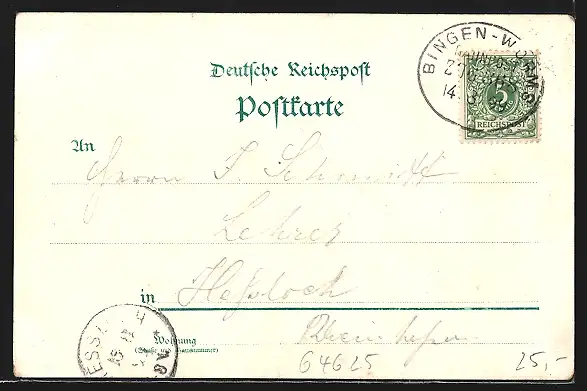 BINGEN-WORMS
BAHNPOST
14.
5
REICHSPOST
Deutsche Reichspost
Postkarte
An
Herrn F. Schmidt
Lehrer
in Heßloch
Wohnung
(Straße und Hausnummer)
Rheinhessen
64625
25,-